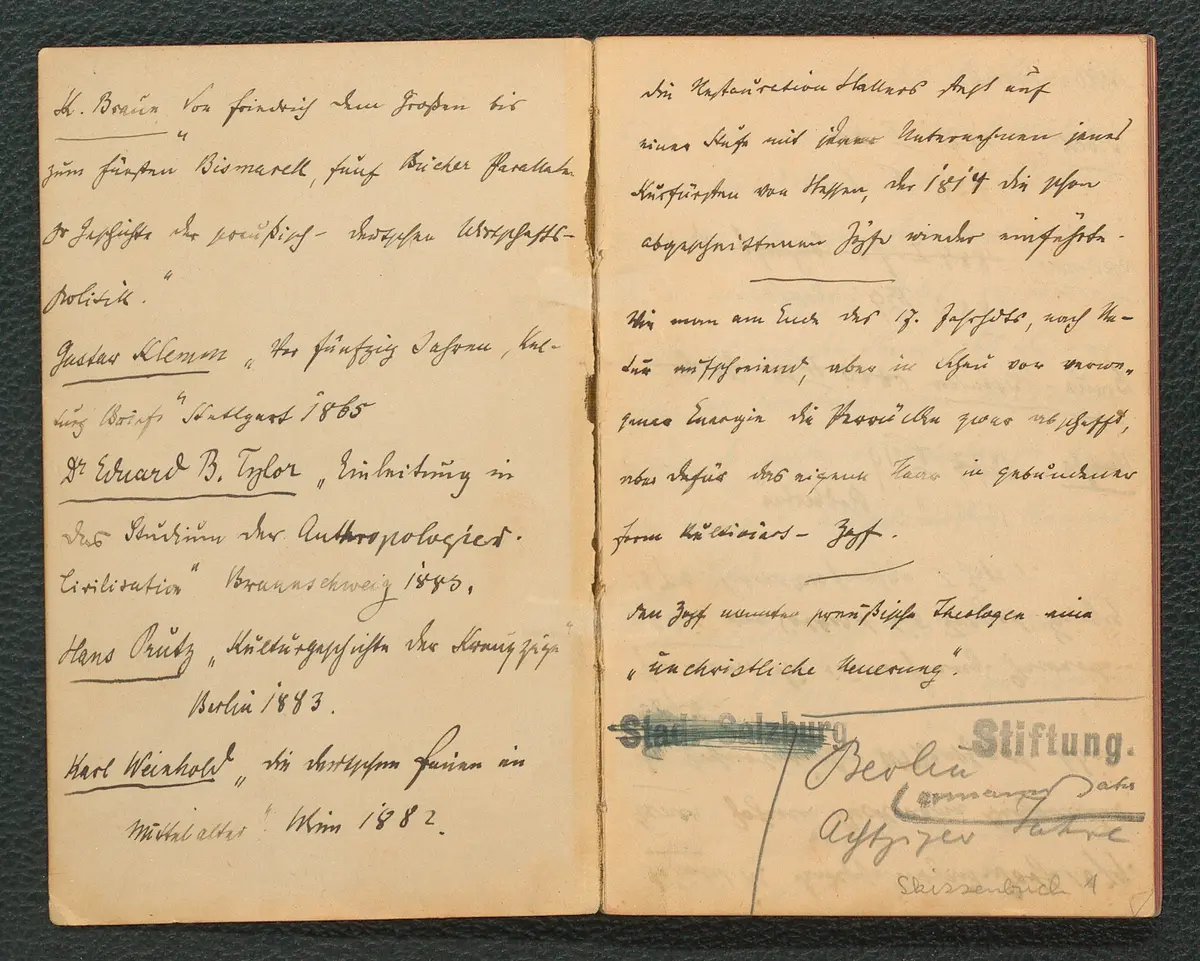 K. Braun "Von Friedrich dem Großen bis
zum Fürsten Bismarck, fünf Bücher Parallelen
zr Geschichte der preußisch- deutschen Wirtschafts-
politik."
Gustav Klemm "Vor fünfzig Jahren, Kul-
turg Briefe" Stuttgart 1865
Dr Eduard B. Tylor "Einleitung in
das Studium der Anthropologie u.
Civilisation" Braunschweig 1883.
Hans Prutz "Kulturgeschichte der Kreuzzüge"
Berlin 1883.
Karl Weinhold "die deutschen Frauen im
Mittelalter". Wien 1882.
die Restauration Hallers steht auf
einer Stufe mit jenem Unternehmen jenes
Kurfürsten von Hessen, der 1814 die schon
abgeschnittenen Zöpfe wieder einführte.
Wie man am Ende des 17. Jahrhdts, nach Na-
tur aufschreiend, aber in Scheu vor verwe-
gener Energie die Perrücken zwar abschafft,
aber dafür das eigene Haar in gebundener
Form kultiviert - Zopf.
den Zopf nannten preußische Theologen eine
"unchristliche Neuerung".
Stadt Salzburg
Stiftung.
Berlin
Achtziger Jahre
Skizzenbuch 1